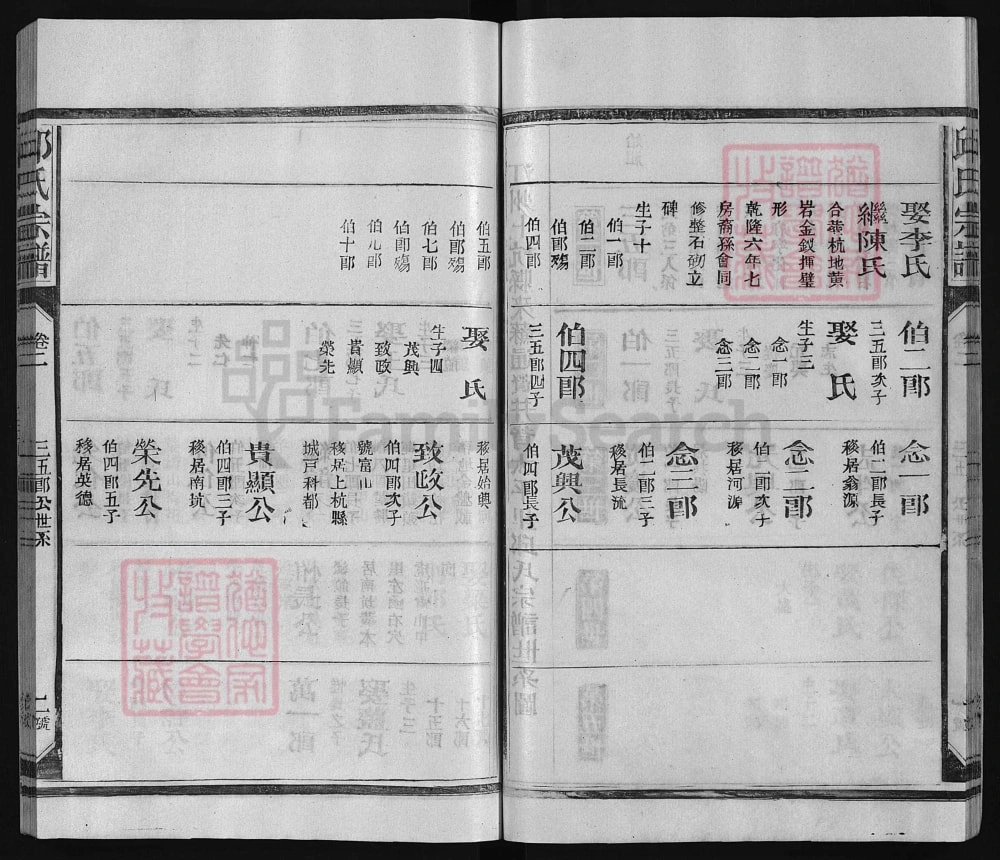 邱氏宗譜
娶李氏
繼陳氏
合塟杭地黄
岩金釵揮璧
形
乾隆六年七
房裔孫會同
修整石砌立
碑
生子十
伯一郎
伯二郎
伯郎殤
伯四郎
伯二郎
三五郎次子
娶 氏
生子三
念一郎
念二郎
念三郎
伯四郎
三五郎四子
念一郎
伯二郎長子
移居翁源
念二郎
伯二郎次子
移居河源
念三郎
伯二郎三子
移居長流
茂興公
伯四郎長子
邱氏宗譜
卷二
三五郎公世系
二號
伯五郎
伯郎殤
伯七郎
伯郎殤
伯九郎
伯十郎
娶 氏
生子四
茂興
致政
貴顯
榮先
移居始興
致政公
伯四郎次子
號富山
移居上杭縣
城戸科都
貴顯公
伯四郎三子
移居南坑
榮先公
伯四郎五子
移居英德
FamilySearch